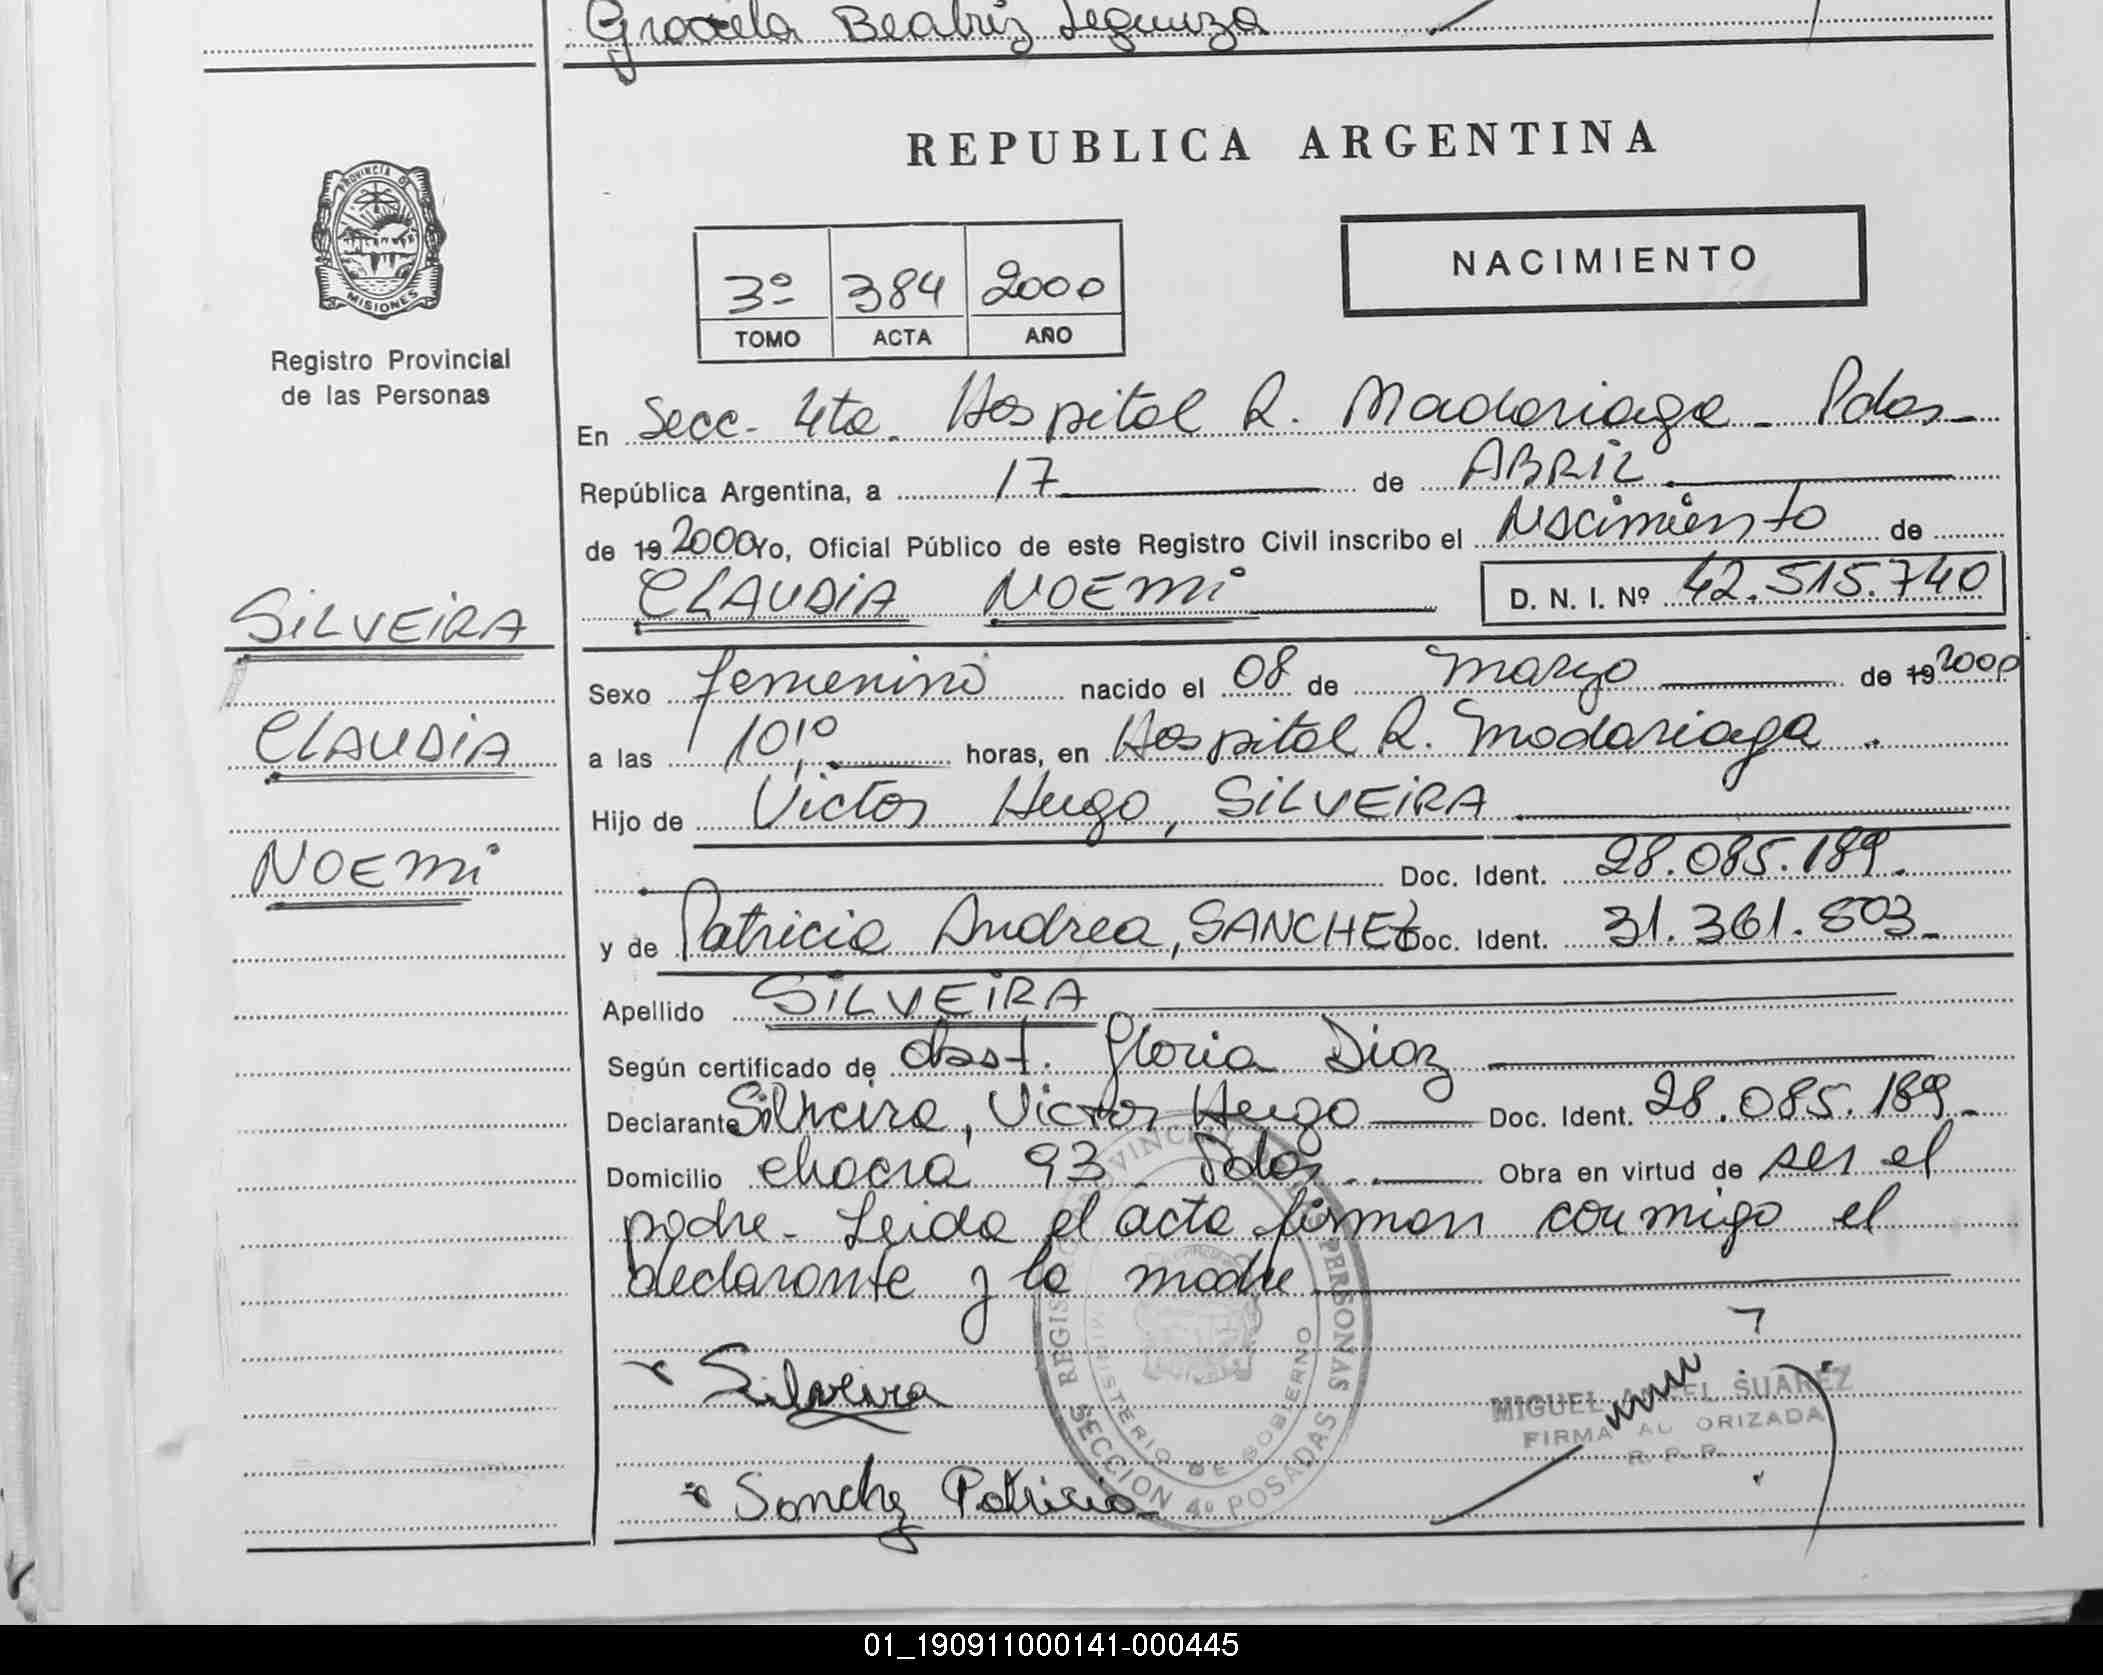 Graciela Beatriz Leguiza
PROVINCIA DE
MISIONES
Registro Provincial
de las Personas
REPUBLICA ARGENTINA
NACIMIENTO
3º 384 2000
TOMO ACTA AÑO
En Secc. 4ta. Hospital R. Madariaga - Pdas -
República Argentina, a 17 de ABRIL
de 19 2000 Yo, Oficial Público de este Registro Civil inscribo el Nacimiento de
CLAUDIA NOEMI D. N. I. Nº 42.515.740
SILVEIRA
CLAUDIA
NOEMI
Sexo femenino nacido el 08 de marzo de 19 2000
a las 10,10 horas, en Hospital R. Madariaga.
Hijo de Victor Hugo, SILVEIRA
Doc. Ident. 28.085.189.
y de Patricia Andrea, SANCHEZ Doc. Ident. 31.361.503 -
Apellido SILVEIRA
Según certificado de obst. Gloria Diaz
Declarante Silveira, Victor Hugo Doc. Ident. 28.085.189 -
Domicilio chacra 93 - Pdas. Obra en virtud de ser el
padre - Leida el acta firman conmigo el
declarante y la madre
Silveira
Sanchez Patricia
REGISTRO PROVINCIAL DE LAS PERSONAS
MINISTERIO DE GOBIERNO
SECCION 4º POSADAS
MIGUEL ANGEL SUAREZ
FIRMA AUTORIZADA
R. P. P.
01_190911000141-000445